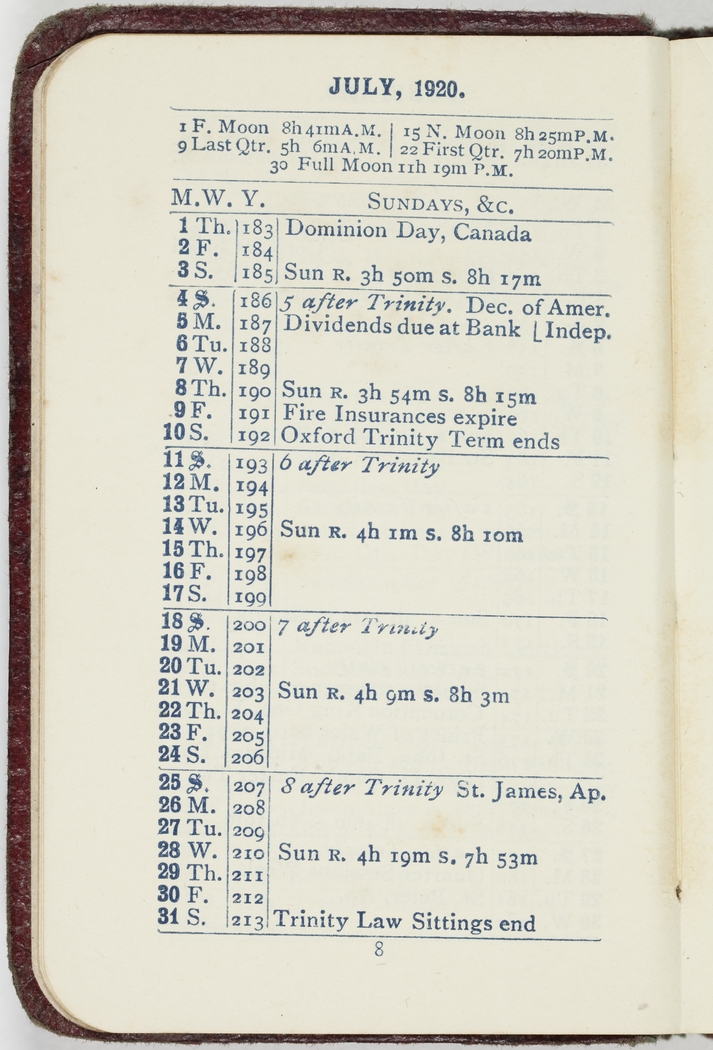 JULY, 1920.
1 F. Moon 8h 41m A.M. | 15 N. Moon 8h 25m P.M.
9 Last Qtr. 5h 6m A.M. | 22 First Qtr. 7h 20m P.M.
30 Full Moon 11h 19m P.M.
M.W. Y. SUNDAYS, &c.
1 Th. 183 Dominion Day, Canada
2 F. 184
3 S. 185 Sun R. 3h 50m s. 8h 17m
4 S. 186 5 after Trinity. Dec. of Amer.
5 M. 187 Dividends due at Bank ⌊ Indep.
6 Tu. 188
7 W. 189
8 Th. 190 Sun R. 3h 54m s. 8h 15m
9 F. 191 Fire Insurances expire
10 S. 192 Oxford Trinity Term ends
11 S. 193 6 after Trinity
12 M. 194
13 Tu. 195
14 W. 196 Sun R. 4h 1m s. 8h 10m
15 Th. 197
16 F. 198
17 S. 199
18 S. 200 7 after Trinity
19 M. 201
20 Tu. 202
21 W. 203 Sun R. 4h 9m s. 8h 3m
22 Th. 204
23 F. 205
24 S. 206
25 S. 207 8 after Trinity St. James, Ap.
26 M. 208
27 Tu. 209
28 W. 210 Sun R. 4h 19m s. 7h 53m
29 Th. 211
30 F. 212
31 S. 213 Trinity Law Sittings end
8